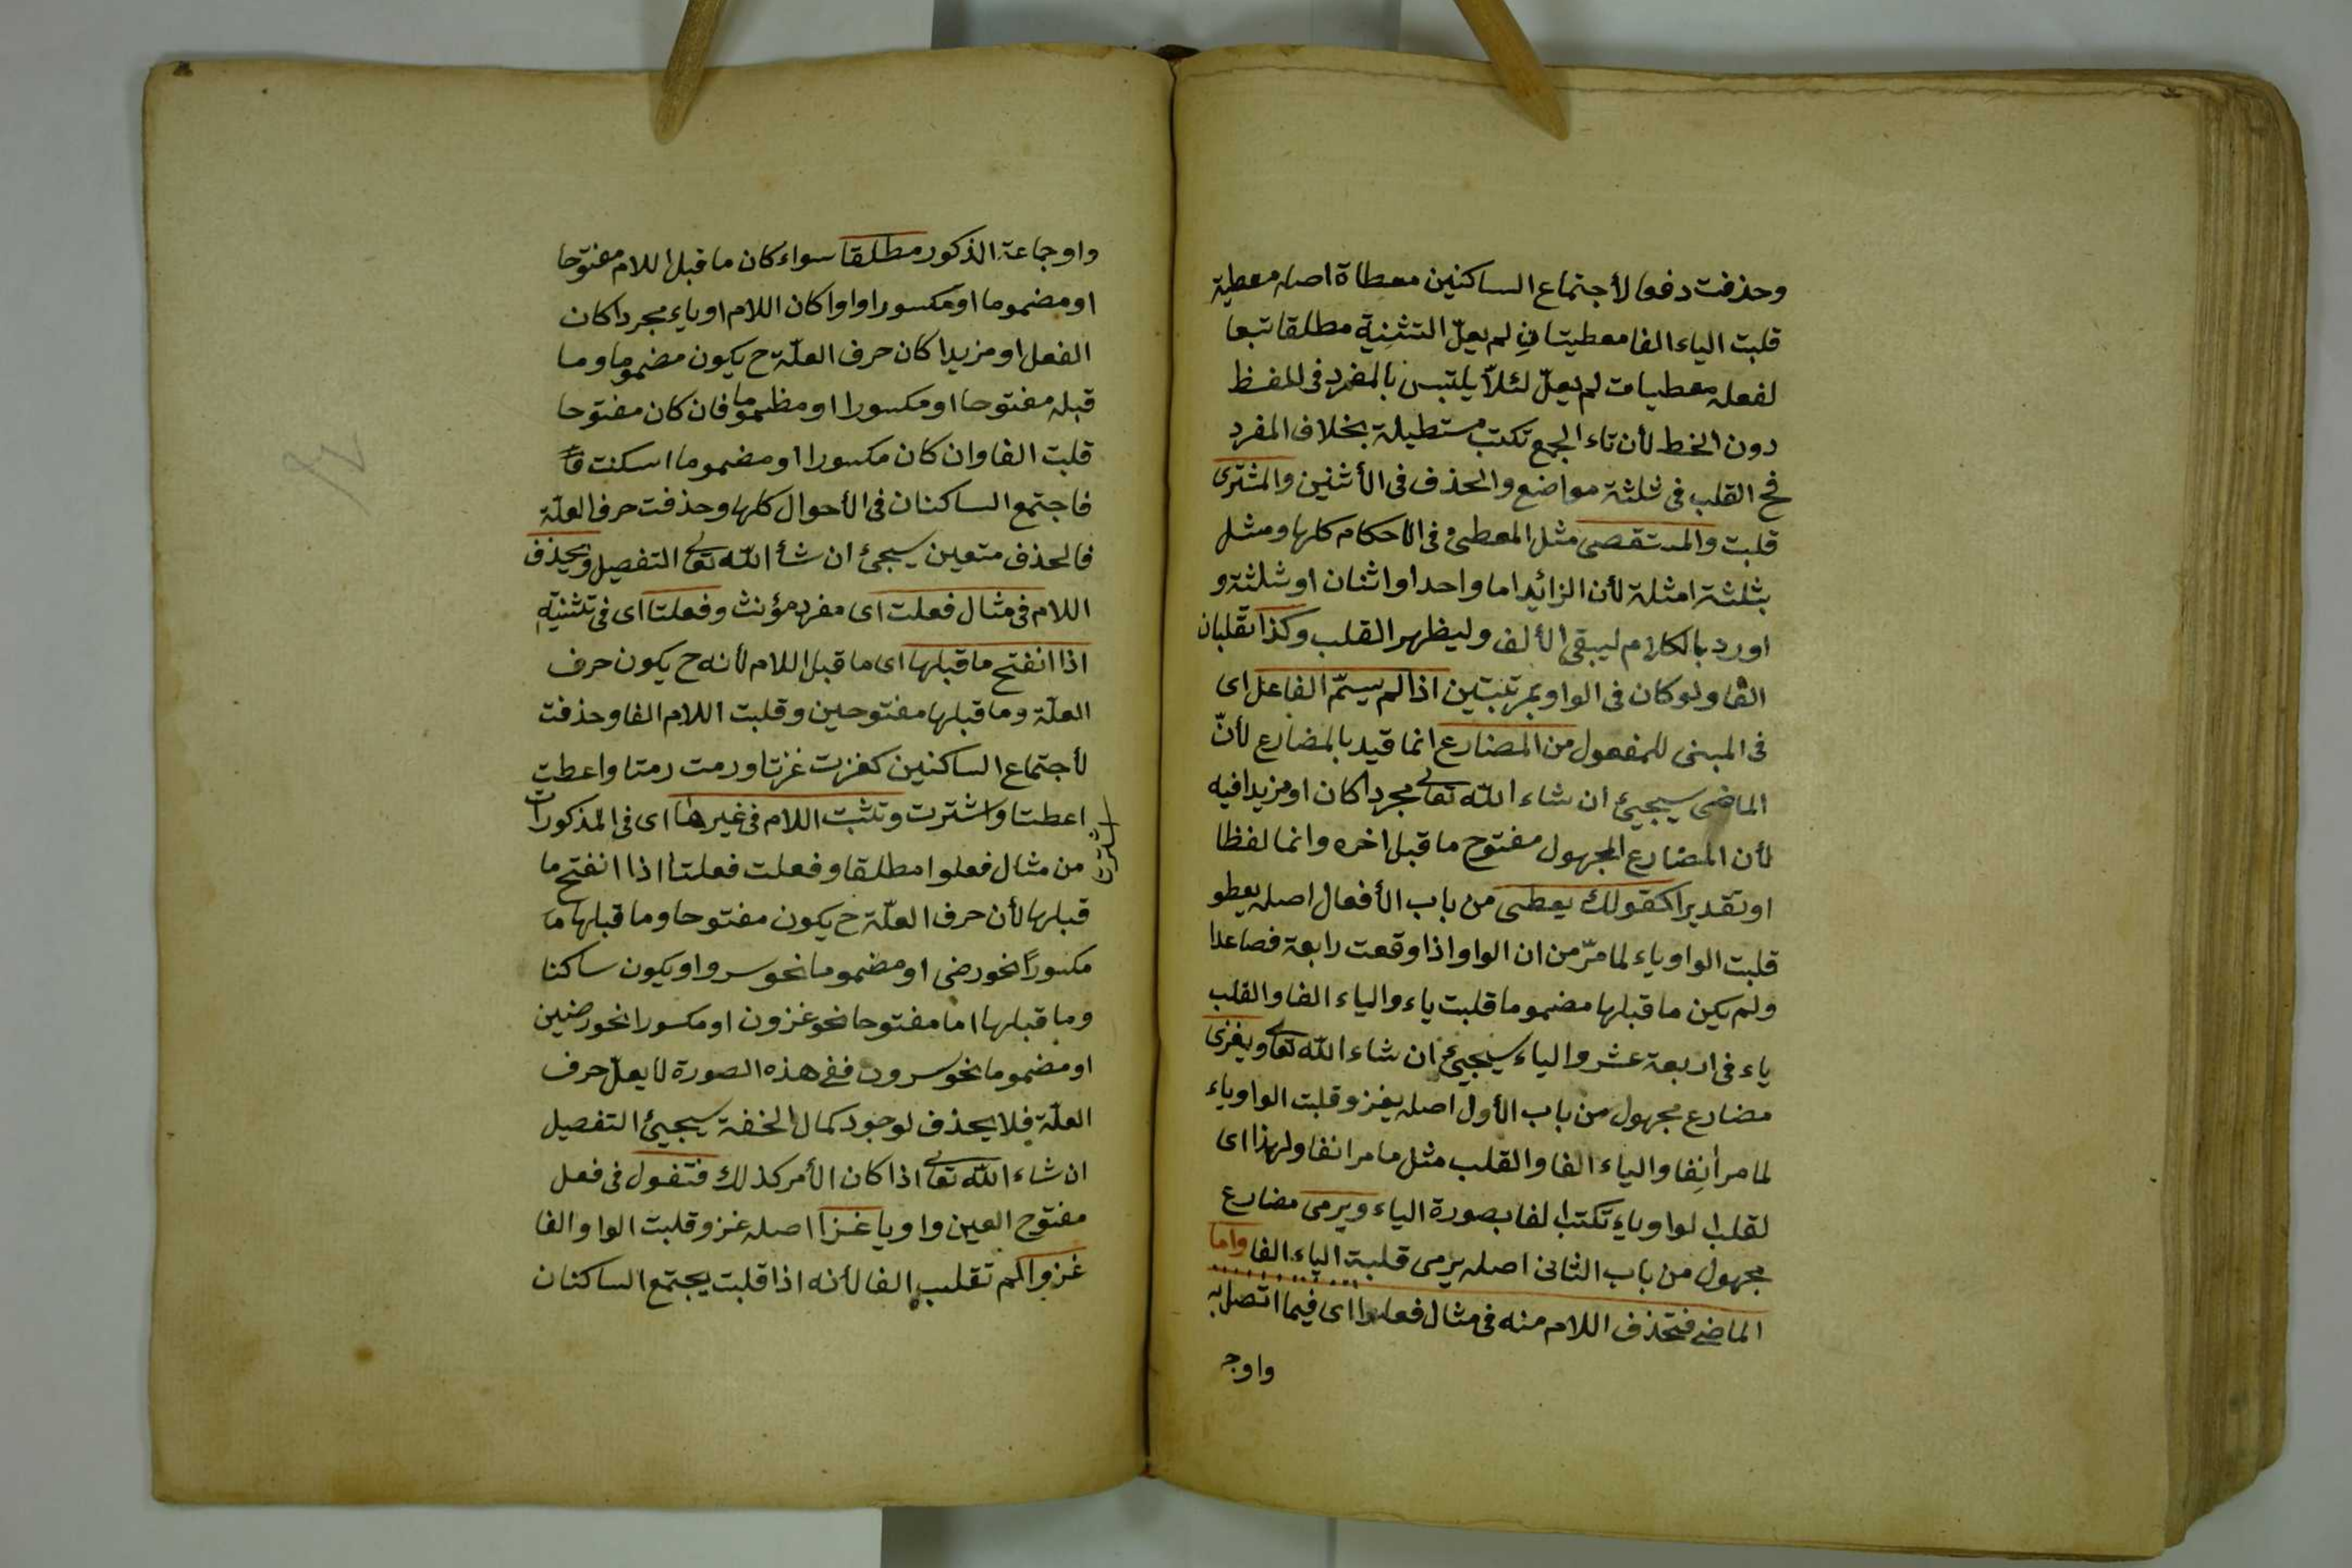 وحذفت دفعا لأجتماع الساكنين معطاة اصله معطية
قلبت الياء الفا معطيتان لم يعلّ التثنية مطلقا تبعا
لفعله معطيات لم يعلّ لئلاّ يلتبس بالمفرد فى اللفظ
دون الخط لأن تاء الجمع تكتب مستطيلة بخلاف المفرد
فح القلب فى ثلثة مواضع والحذف فى الأثنين والمشترى
قلبت والمستقصى مثل المعطى فى الاحكام كلها ومثل
بثلثة امثلة لأن الزائد اما واحد او اثنان او ثلثة و
اورد بالكلام ليبقى الألف وليظهر القلب وكذا تقلبان
الفا ولو كان فى الواو بمرتبتين اذا لم يسمّ الفاعل اى
فى المبنى للمفعول من المضارع انما قيد بالمضارع لأنّ
الماضى سيجيئ ان شاء الله تعالى مجردا كان او مزيدا فيه
لأن المضارع المجهول مفتوح ما قبل اخره وانما لفظا
او تقديرا كقولك يعطى من باب الأفعال اصله يعطو
قلبت الواو ياء لما مرّ من ان الواو اذا وقعت رابعة فصاعدا
ولم يكن ما قبلها مضموما قلبت ياء والياء الفا والقلب
ياء فى اربعة عشر والياء سيجيئ ان شاء الله تعالى ويغزى
مضارع مجهول من باب الأول اصله يغزو قلبت الواو ياء
لما مر أنِفا والياء الفا والقلب مثل ما مر انفا ولهذا اى
لقلب الواو ياء تكتب الفا بصورة الياء ويرمى مضارع
مجهول من باب الثانى اصله يرمى قلبت الياء الفا واما
الماضى فتحذف اللام منه فى مثال فعلوا اى فيما اتصل به
واوج
واو جماعة الذكور مطلقا سواء كان ما قبل اللام مفتوحا
او مضموما او مكسورا واوا كان اللام او ياء مجردا كان
الفعل او مزيدا كان حرف العلّة ح يكون مضموما وما
قبله مفتوحا او مكسورا او مظموما فان كان مفتوحا
قلبت الفا وان كان مكسورا او مضموما اسكنت
فاجتمع الساكنان فى الأحوال كلها وحذفت حرف العلّة
فالحذف متعين سيجئ ان شأ الله تعالى التفصيل ويحذف
اللام فى مثال فعلت اى مفرد مؤنث وفعلتا اى فى تثنيةِ
اذا انفتح ما قبلها اى ما قبل اللام لأنه ح يكون حرف
العلّة وما قبلها مفتوحين وقلبت اللام الفا وحذفت
لأجتماع الساكنين كغزت غزتا ورمت رمتا واعطت
اعطتا واشترت وتثبت اللام فى غيرها اى فى المذكورات
اشترتا
من مثال فعلوا مطلقا وفعلت فعلتا اذا انفتح ما
قبلها لأن حرف العلّة ح يكون مفتوحا وما قبلها ما
مكسورًا نحو رضى او مضموما نحو سرو او يكون ساكنا
وما قبلها اما مفتوحا نحو غزون او مكسورا نحو رضين
او مضموما نحو سرون ففى هذه الصورة لا يعلّ حرف
العلّة فلا يحذف لوجود كمال الخفة سيجيئ التفصيل
ان شاء الله تعالى اذا كان الأمر كذلك فتقول فى فعل
مفتوح العين واويا غزا اصله غزو قلبت الواو الفا
غزوا لم تقلب الفا لأنه اذا قلبت يجتمع الساكنان